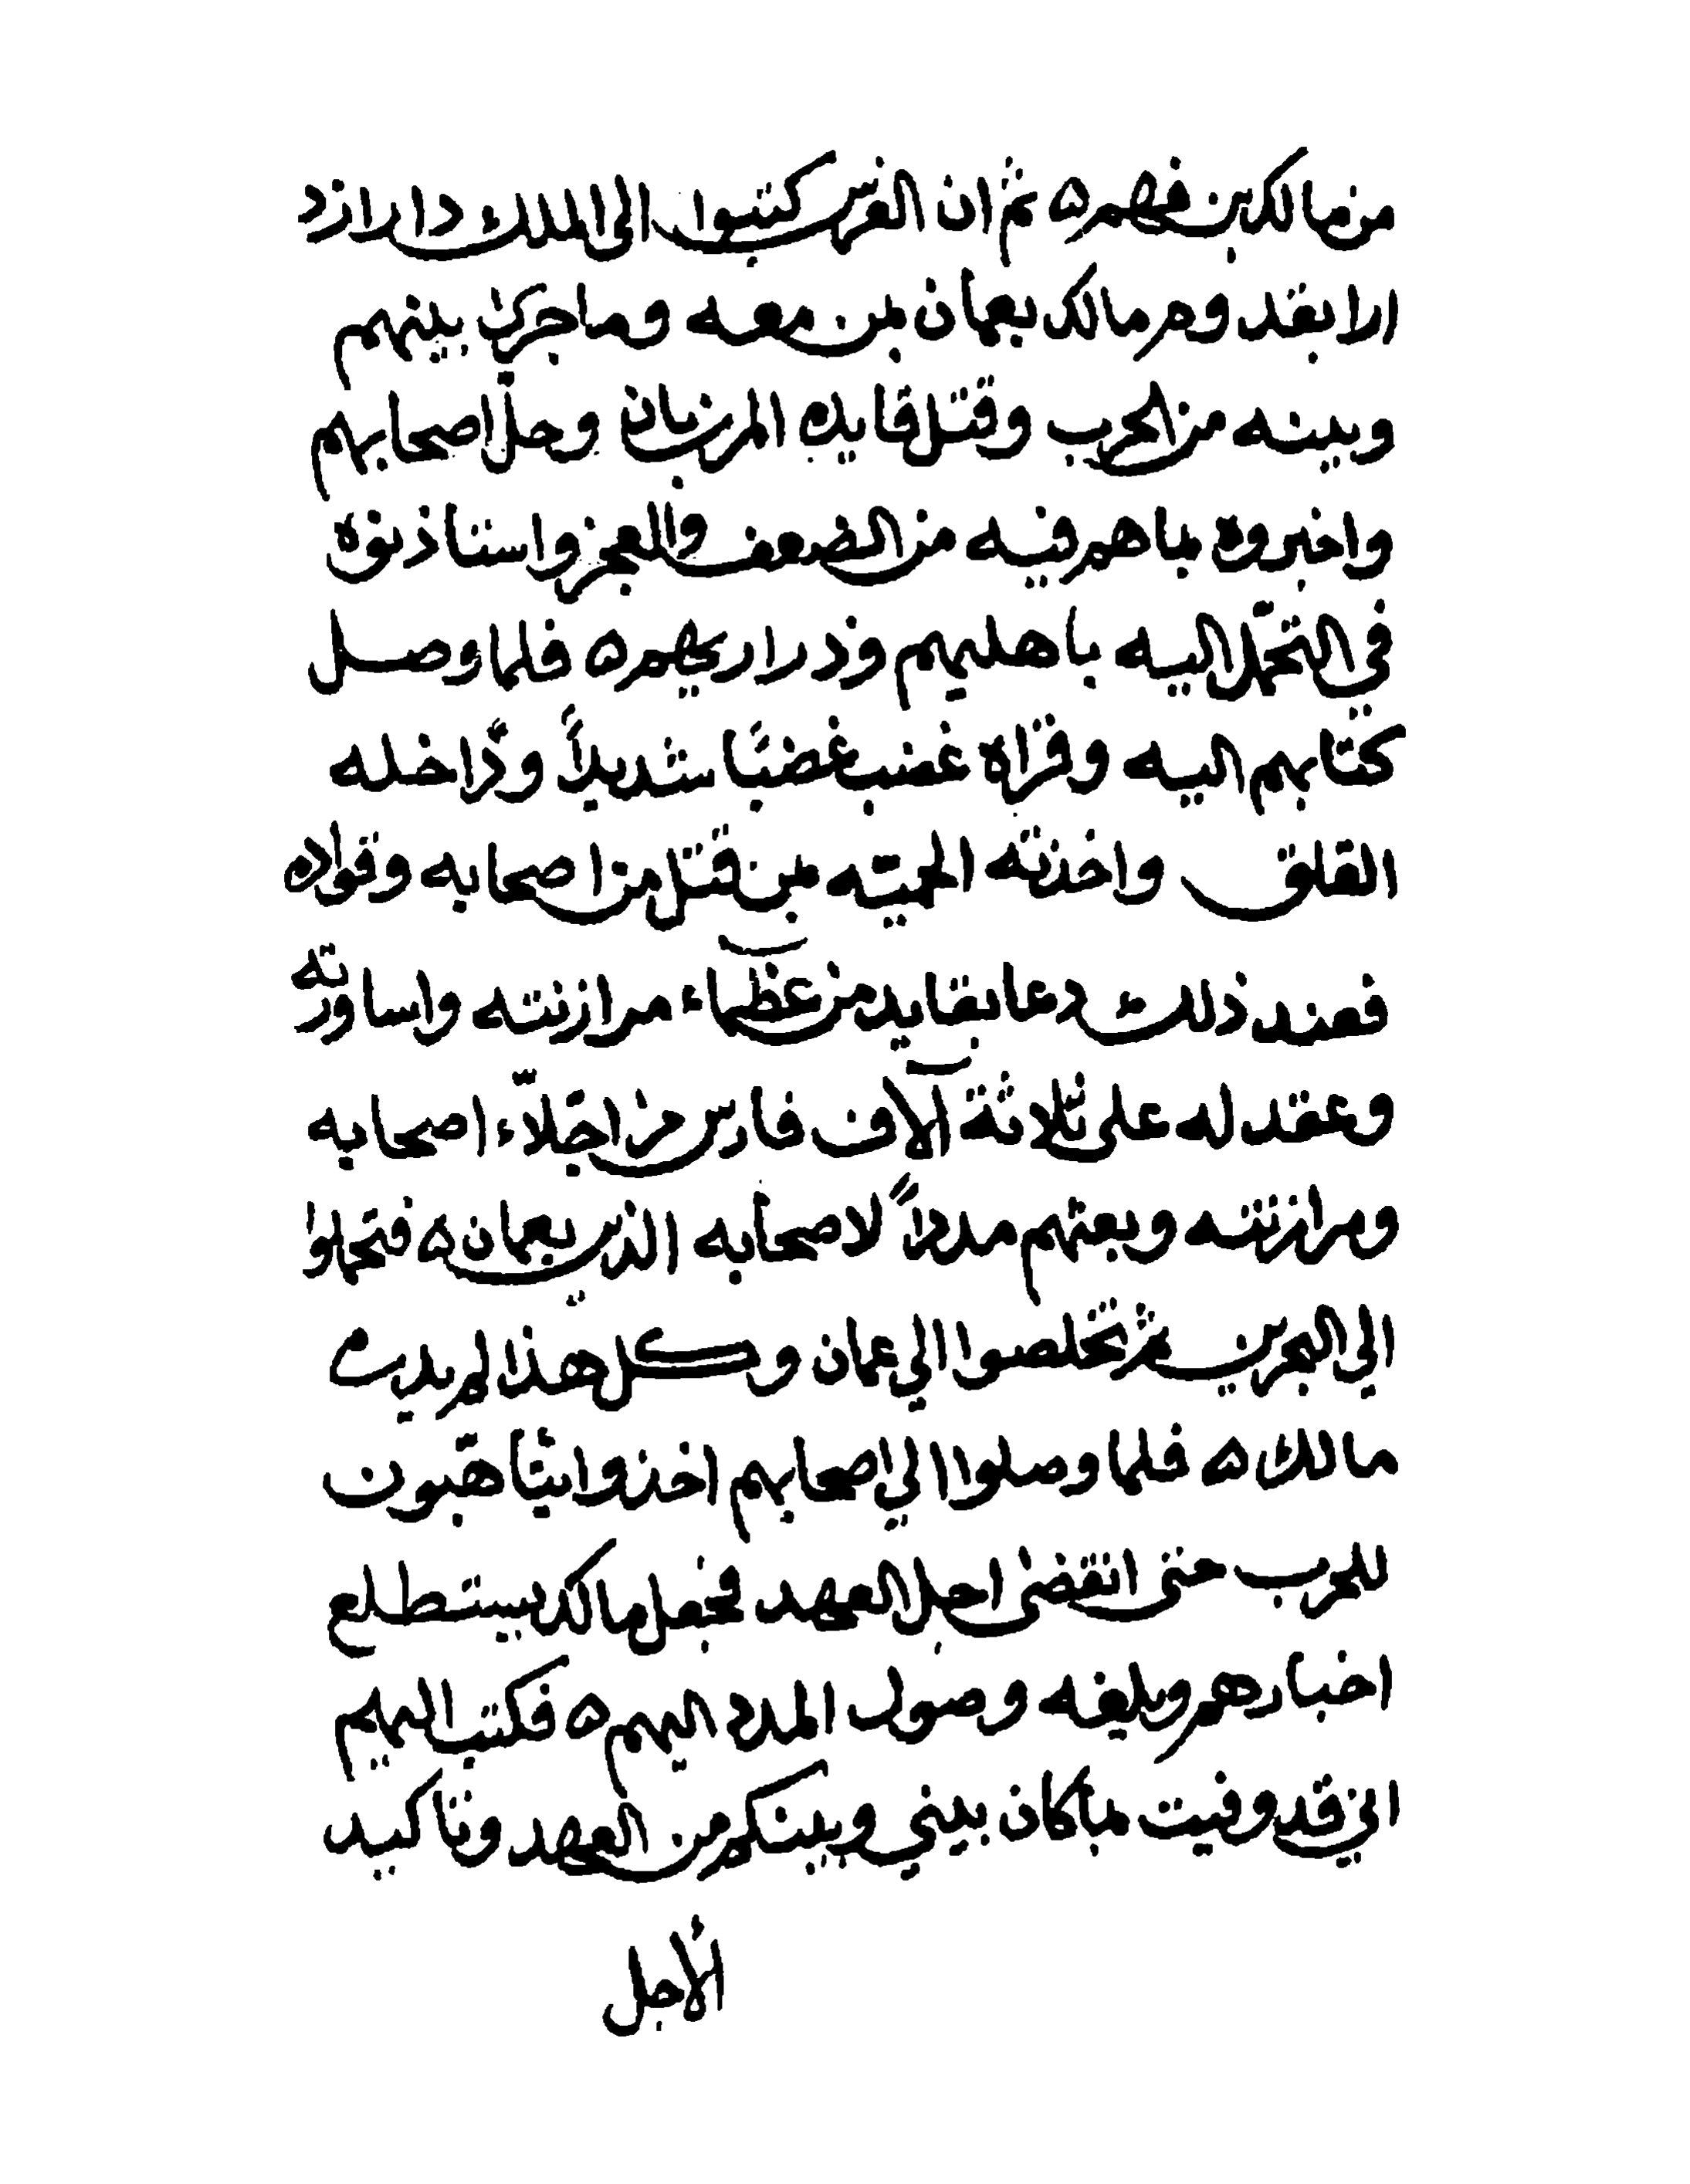 من مالك بن فهم ه ثم ان الفرس كتبوا الى الملك دارا ازد
ارا بقدوم مالك بعمان بمن معه وما جرى بينهم
وبينه من الحرب وقتل قايده المرزبان وجلّ اصحابهم
واخبروه بما هم فيه من الضعف والعجز واستاذنوه
في التحمّل اليه باهليهم وذراريهم ه فلما وصل
كتابهم اليه وقراه غضب غضبًا شديدًا وداخله
القلق واخذته الحميّة بمن قتل من اصحابه وقواده
فعند ذلك دعا بقايد من عظماء مرازبته واساورته
وعقد له على ثلاثة آلاف فارس من اجلّاء اصحابه
ومرازبته وبعثهم مددًا لاصحابه الذين بعمان ه فتحملوا
الي البحرين ثم تخلصوا الي عمان وكل هذا لم يدر به
مالك ه فلما وصلوا الي اصحابهم اخذوا يتاهبون
للحرب حتى انقضى اجل العهد فجعل مالك يستطلع
اخبارهم وبلغه وصول المدد اليهم ه فكتب اليهم
اني قد وفيت بما كان بيني وبينكم من العهد وتاكيد
الأجل